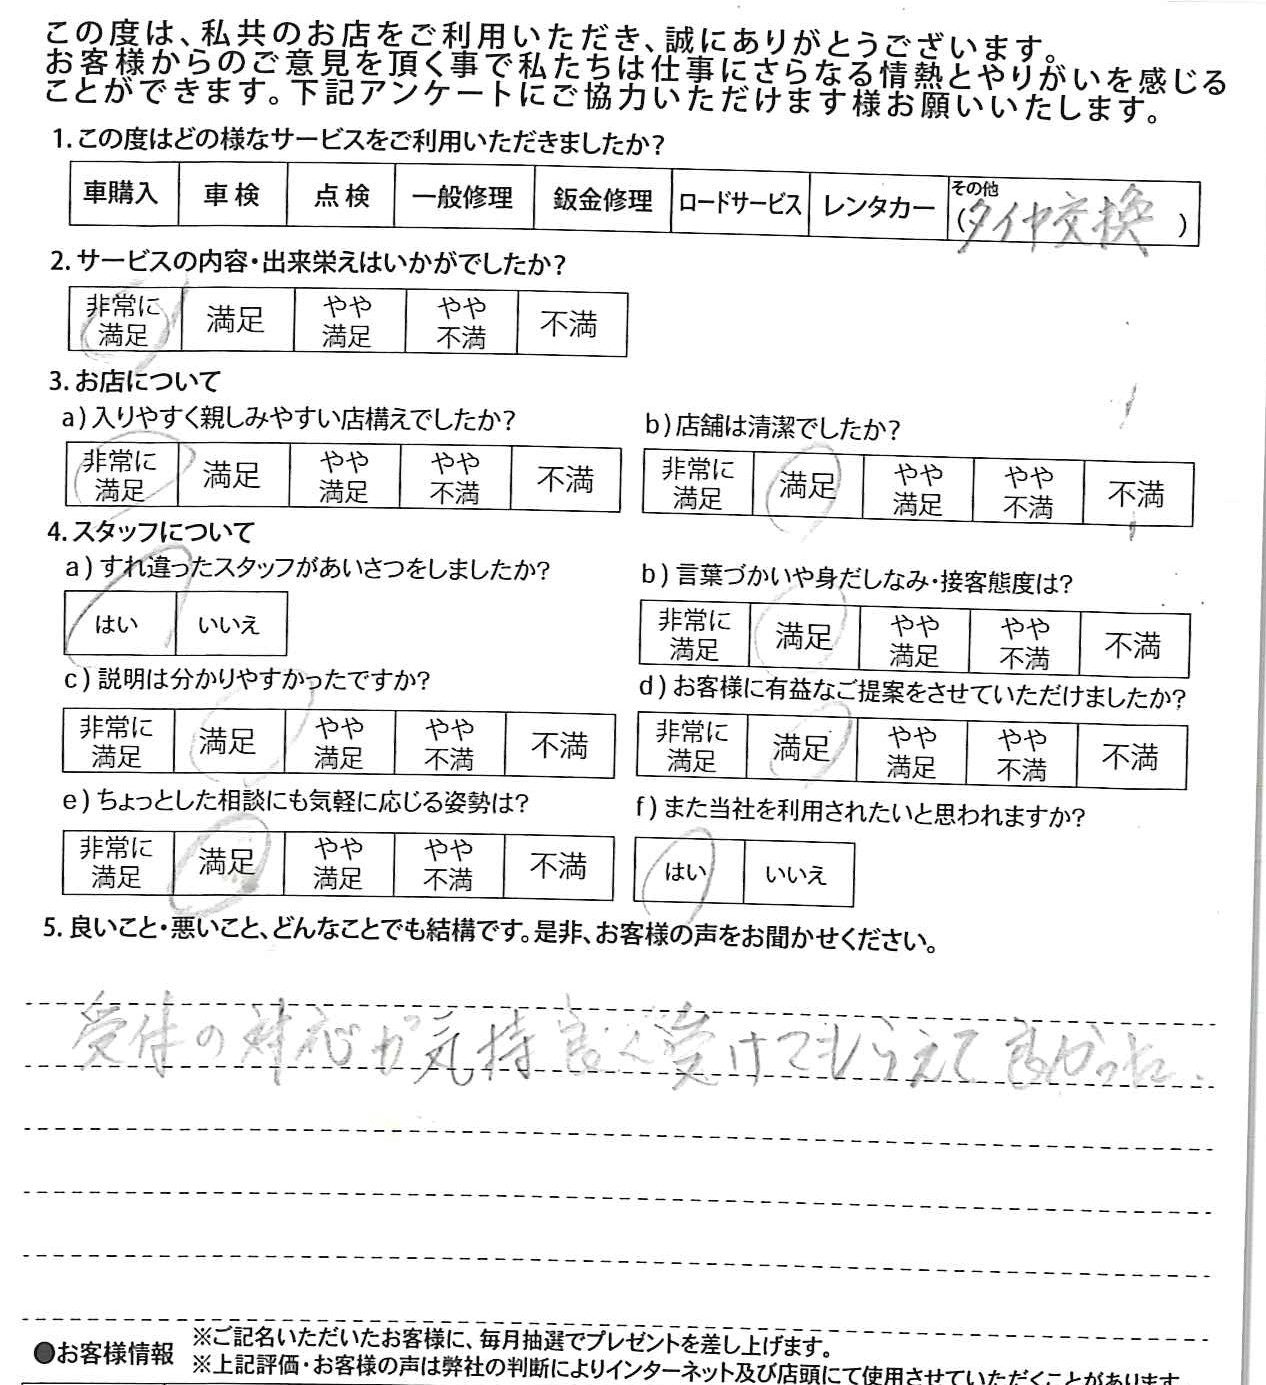 この度は、私共のお店をご利用いただき、誠にありがとうございます。
お客様からのご意見を頂く事で私たちは仕事にさらなる情熱とやりがいを感じる
ことができます。下記アンケートにご協力いただけます様お願いいたします。
1.この度はどの様なサービスをご利用いただきましたか?
車購入 車検 点検 一般修理 鈑金修理 ロードサービス レンタカー その他
(タイヤ交換)
2.サービスの内容・出来栄えはいかがでしたか?
非常に満足 満足 やや満足 やや不満 不満
3.お店について
a)入りやすく親しみやすい店構えでしたか?
非常に満足 満足 やや満足 やや不満 不満
b)店舗は清潔でしたか?
非常に満足 満足 やや満足 やや不満 不満
4.スタッフについて
a)すれ違ったスタッフがあいさつをしましたか?
はい いいえ
b)言葉づかいや身だしなみ・接客態度は?
非常に満足 満足 やや満足 やや不満 不満
c)説明は分かりやすかったですか?
非常に満足 満足 やや満足 やや不満 不満
d)お客様に有益なご提案をさせていただけましたか?
非常に満足 満足 やや満足 やや不満 不満
e)ちょっとした相談にも気軽に応じる姿勢は?
非常に満足 満足 やや満足 やや不満 不満
f)また当社を利用されたいと思われますか?
はい いいえ
5.良いこと・悪いこと、どんなことでも結構です。是非、お客様の声をお聞かせください。
受付の対応が気持良く受けてもらえて良かった.
●お客様情報
※ご記名いただいたお客様に、毎月抽選でプレゼントを差し上げます。
※上記評価・お客様の声は弊社の判断によりインターネット及び店頭にて使用させていただくことがあります